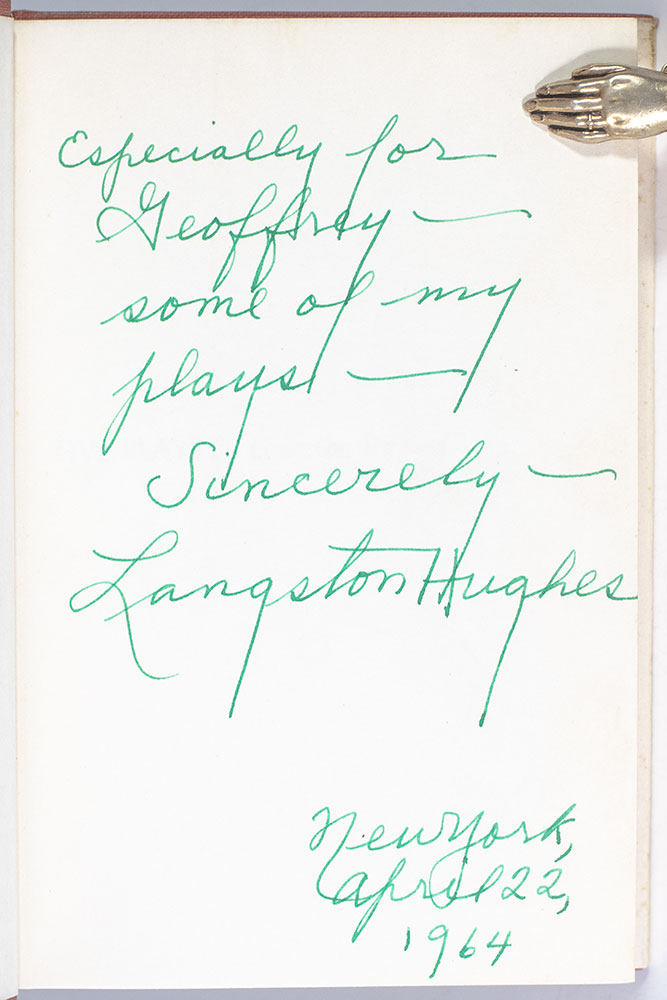 Especially for
Geoffrey —
some of my
plays —
Sincerely —
Langston Hughes
New York,
April 22,
1964